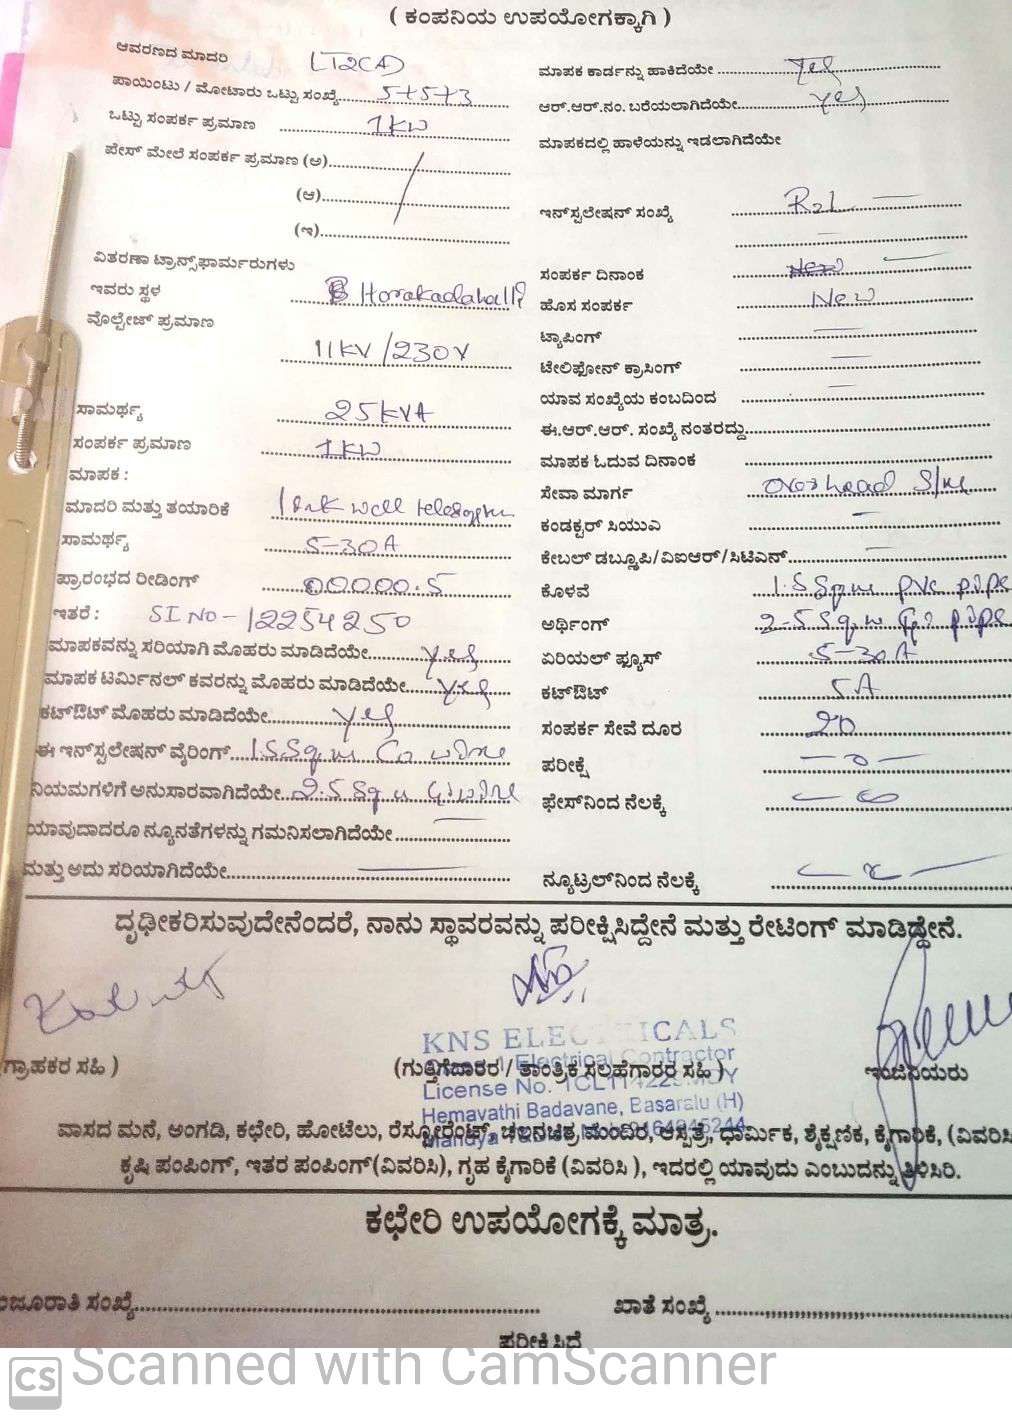 ( ಕಂಪನಿಯ ಉಪಯೋಗಕ್ಕಾಗಿ )
ಆವರಣದ ಮಾದರಿ LT2(A)
ಪಾಯಿಂಟು / ಮೋಟಾರು ಒಟ್ಟು ಸಂಖ್ಯೆ 5+5+3
ಒಟ್ಟು ಸಂಪರ್ಕ ಪ್ರಮಾಣ 1KW
ಪೇಸ್ ಮೇಲೆ ಸಂಪರ್ಕ ಪ್ರಮಾಣ (ಅ)
(ಆ)
(ಇ)
ವಿತರಣಾ ಟ್ರಾನ್ಸ್‌ಫಾರ್ಮರುಗಳು
ಇವರು ಸ್ಥಳ Horakadahalli
ವೊಲ್ಟೇಜ್ ಪ್ರಮಾಣ
11KV/230V
ಸಾಮರ್ಥ್ಯ 25KVA
ಸಂಪರ್ಕ ಪ್ರಮಾಣ 1KW
ಮಾಪಕ :
ಮಾದರಿ ಮತ್ತು ತಯಾರಿಕೆ
ಸಾಮರ್ಥ್ಯ 5-30A
ಪ್ರಾರಂಭದ ರೀಡಿಂಗ್ 00000.5
ಇತರೆ : SI NO-12254250
ಮಾಪಕವನ್ನು ಸರಿಯಾಗಿ ಮೊಹರು ಮಾಡಿದೆಯೇ yes
ಮಾಪಕ ಟರ್ಮಿನಲ್ ಕವರನ್ನು ಮೊಹರು ಮಾಡಿದೆಯೇ yes
ಕಟ್‌ಔಟ್ ಮೊಹರು ಮಾಡಿದೆಯೇ yes
ಈ ಇನ್‌ಸ್ಟಲೇಷನ್ ವೈರಿಂಗ್ 1.5 Sqm Co wire
ನಿಯಮಗಳಿಗೆ ಅನುಸಾರವಾಗಿದೆಯೇ 2.5 Sqm GI wire
ಯಾವುದಾದರೂ ನ್ಯೂನತೆಗಳನ್ನು ಗಮನಿಸಲಾಗಿದೆಯೇ
ಮತ್ತು ಅದು ಸರಿಯಾಗಿದೆಯೇ
ಮಾಪಕ ಕಾರ್ಡನ್ನು ಹಾಕಿದೆಯೇ Yes
ಆರ್.ಆರ್.ನಂ. ಬರೆಯಲಾಗಿದೆಯೇ yes
ಮಾಪಕದಲ್ಲಿ ಹಾಳೆಯನ್ನು ಇಡಲಾಗಿದೆಯೇ
ಇನ್‌ಸ್ಟಲೇಷನ್ ಸಂಖ್ಯೆ
ಸಂಪರ್ಕ ದಿನಾಂಕ
ಹೊಸ ಸಂಪರ್ಕ New
ಟ್ಯಾಪಿಂಗ್
ಟೇಲಿಫೋನ್ ಕ್ರಾಸಿಂಗ್
ಯಾವ ಸಂಖ್ಯೆಯ ಕಂಬದಿಂದ
ಈ.ಆರ್.ಆರ್. ಸಂಖ್ಯೆ ನಂತರದ್ದು
ಮಾಪಕ ಓದುವ ದಿನಾಂಕ
ಸೇವಾ ಮಾರ್ಗ Overhead
ಕಂಡಕ್ಟರ್ ಸಿಯುಎ
ಕೇಬಲ್ ಡಬ್ಲ್ಯೂಪಿ/ವಿಐಆರ್/ಸಿಟಿಎನ್
ಕೊಳವೆ 1.5 Sqm PVC pipe
ಅರ್ಥಿಂಗ್ 2.5 Sqm GI pipe
ಏರಿಯಲ್ ಫ್ಯೂಸ್ 5-30A
ಕಟ್‌ಔಟ್ 5A
ಸಂಪರ್ಕ ಸೇವೆ ದೂರ 20
ಪರೀಕ್ಷೆ
ಫೇಸ್‌ನಿಂದ ನೆಲಕ್ಕೆ
ನ್ಯೂಟ್ರಲ್‌ನಿಂದ ನೆಲಕ್ಕೆ
ದೃಢೀಕರಿಸುವುದೇನೆಂದರೆ, ನಾನು ಸ್ಥಾವರವನ್ನು ಪರೀಕ್ಷಿಸಿದ್ದೇನೆ ಮತ್ತು ರೇಟಿಂಗ್ ಮಾಡಿದ್ದೇನೆ.
KNS ELECTRICALS
Electrical Contractor
License No.
Hemavathi Badavane, Basaralu (H)
ಗ್ರಾಹಕರ ಸಹಿ )
(ಗುತ್ತಿಗೆದಾರರ / ತಾಂತ್ರಿಕ ಸಲಹೆಗಾರರ ಸಹಿ )
ಇಂಜಿನಿಯರು
ವಾಸದ ಮನೆ, ಅಂಗಡಿ, ಕಛೇರಿ, ಹೋಟೆಲು, ರೆಸ್ಟೋರೆಂಟ್, ಚಲನಚಿತ್ರ ಮಂದಿರ, ಆಸ್ಪತ್ರೆ, ಧಾರ್ಮಿಕ, ಶೈಕ್ಷಣಿಕ, ಕೈಗಾರಿಕೆ, (ವಿವರಿಸಿ
ಕೃಷಿ ಪಂಪಿಂಗ್, ಇತರ ಪಂಪಿಂಗ್(ವಿವರಿಸಿ), ಗೃಹ ಕೈಗಾರಿಕೆ (ವಿವರಿಸಿ ), ಇದರಲ್ಲಿ ಯಾವುದು ಎಂಬುದನ್ನು ತಿಳಿಸಿರಿ.
ಕಛೇರಿ ಉಪಯೋಗಕ್ಕೆ ಮಾತ್ರ.
ಮಂಜೂರಾತಿ ಸಂಖ್ಯೆ
ಖಾತೆ ಸಂಖ್ಯೆ
ಪರೀಕ್ಷಿಸಿದೆ
CS Scanned with CamScanner